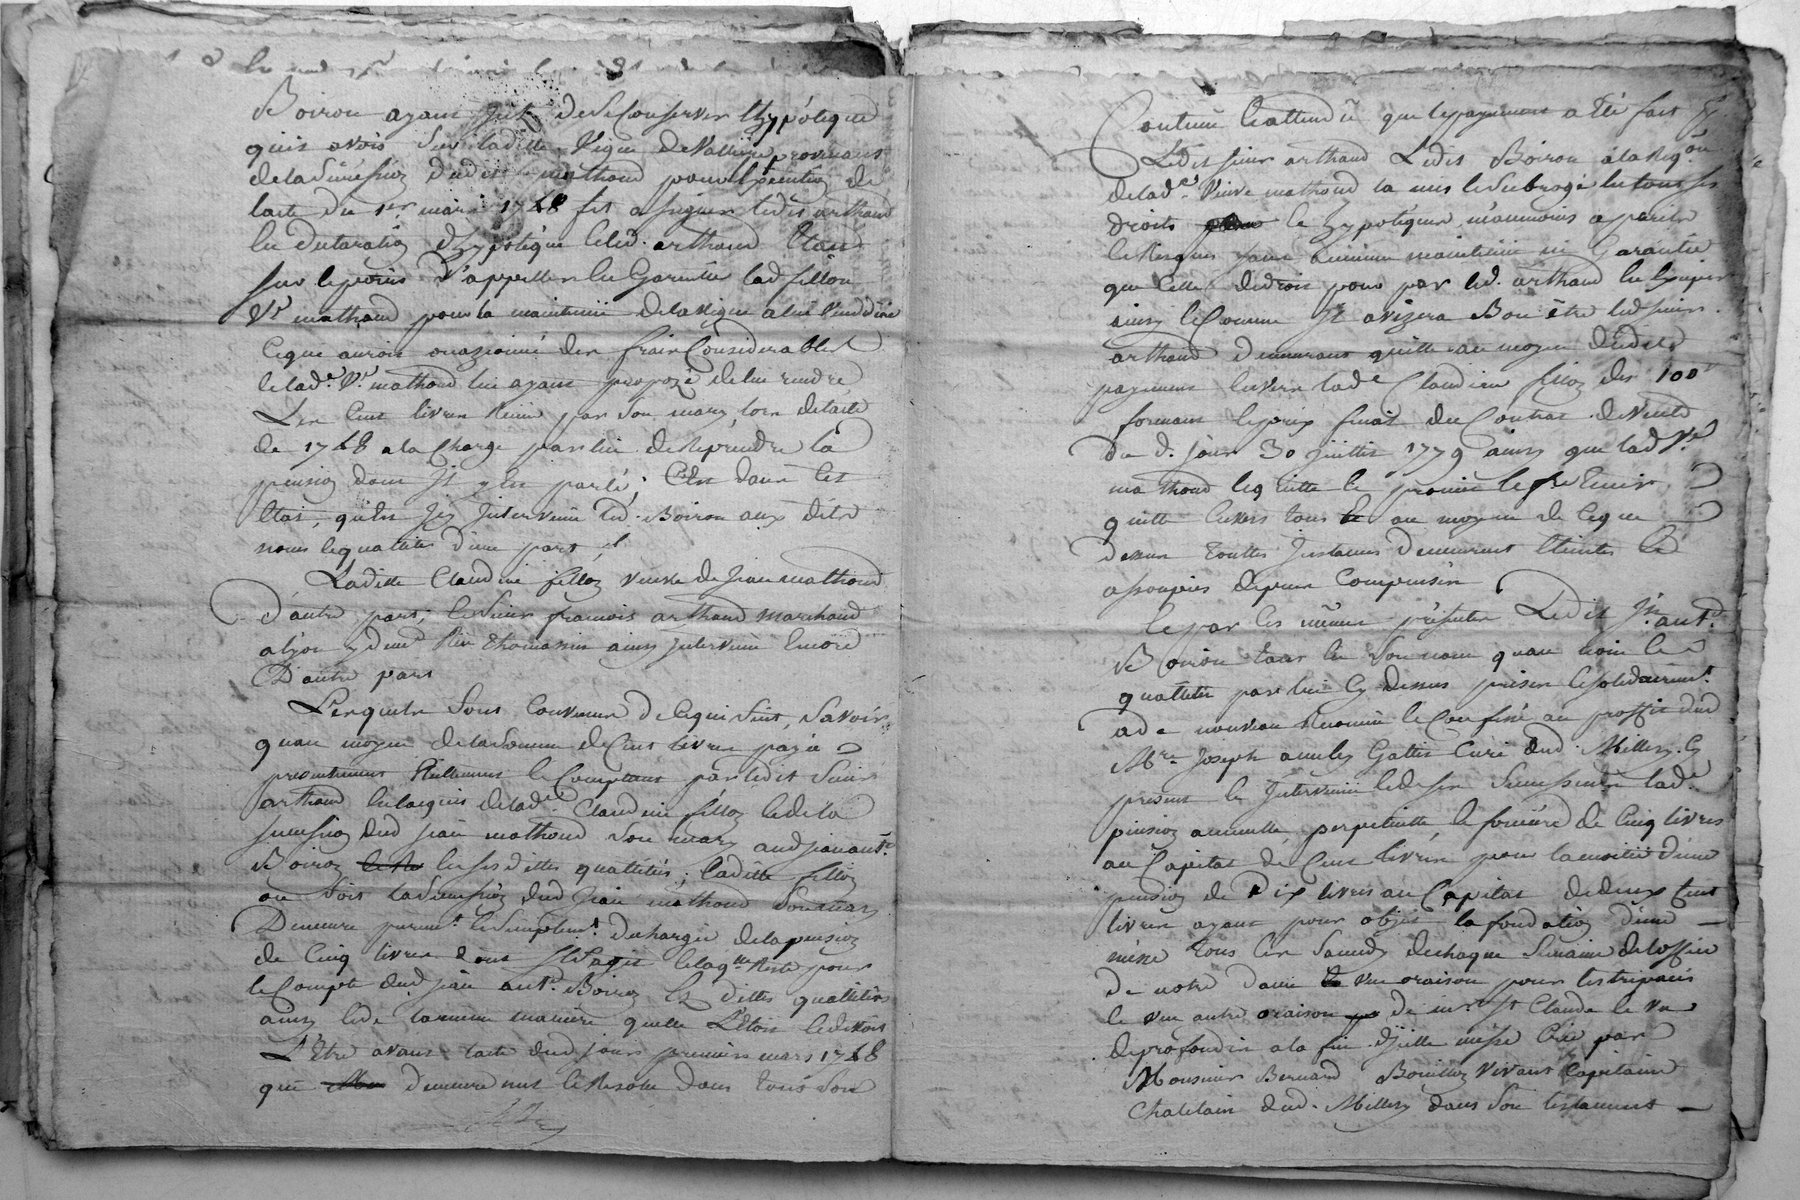 Boiron ayant Jnt. de se Conserver lhypoteque
quis avois Sur laditte Vigne de Vallieye provenant
de la Sucession dudit mathoud pour lexecution de
lacte du 1er mars 1748 fit assigner ledit arthaud
en declaration dhypoteque led. arthaud Etant
sur le point d'appeller en Garentie lad fillon
Ve mathoud pour la maintenüe de la vigne a lui Vendüe
ce que auroit occazionné des frais Considerables
et lad.e Ve. mathoud lui ayant propozé de lui rendre
Les Cent livres Reçüe par Son mary lors de lacte
de 1748 a la Charge par lui de Reprendre la
pension dont Jl y Est parlé; C'est dans Cet
Etat, qu'Est Jcy Jntervenu led. Boiron aux dits
noms et quallités d'une part et
Laditte Claudine fillon veuve de Jean mathoud
d'autre part, et Sieur francois arthaud marchand
a lyon y dem.t Rüe Thomassin aussy Jntervenu Encore
D'autre part
Lesquels Sont Convenus de Ce qui Suit, Savoir
quau moyen de la Somme de Cent livres payée
presentement Reellement et Comptant par ledit Sieur
arthaud en lacquis de lad.e Claudine fillon et de la
sucession dud jean mathoud Son mary aud jean ant.e
Boiron en ses dittes quallités; laditte fillon
ou Soit la Sucession dud Jean mathoud Son mary
Demeure purem.t et Simplem.t dechargée de la pension
de Cinq livres dont Jl Sagit laq.lle Reste pour
le Compte dud jean ant.e Boiron Es dittes quallités
aussy et de la meme maniere quelle Létoit et devoit
L'Etre avant lacte dud jour premier mars 1748
qui demeure nul et Resolu dans tout Son
Contenu Et attendü que le payement a Eté fait p.r
Ledit sieur arthaud Ledit Boiron a la Req.on
de lad.e Veuve mathoud la mis et Subrogé en tous ses
droits et hypoteques, neanmoins a perils
et Risques sans aucune maintenüe ni Garantie
que Celle de droit pour par led. arthaud
ainsy et Comme Jl avizera Bon être led sieur
arthaud demeurant quitte au moyen dudit
payement Envers lad.e Claudine fillon des 100
formant le prix final du Contrat de vente
Du d. jour 30 juillet 1779 ainsy que lad Ve
mathoud
quitte Envers tous au moyen de Ceque
dessus touttes Jnstances demeurent Eteintes Et
assoupies depens Compensés
Et par Ces mêmes présentes Ledit Jn. ant.e
Boiron tant En Son nom quau nom Et
quallités par lui Cy dessus prises et Solidairem.t
a de nouveau Reconnu et Confessé au proffit dud
Mre. Joseph Gattet Curé dud. Millery Cy
present Et Jntervenu lad.e
pension annuelle perpetuelle, et fonciere de Cinq livres
au Capital de Cent livres pour la moitié d'une
pension de Dix livres au Capital de deux Cent
livres ayant pour objet la fondation d'une
messe tous les Samedy de chaque Semaine de loffice
de notre dame une oraison pour les trépassés
et une autre oraison de mr. St Claude et un
deprofondis a la fin dJcelle messe Créée par
Monsieur Bernard Bouillon Vivant Capitaine
Chatelain dud. Millery dans Son testament